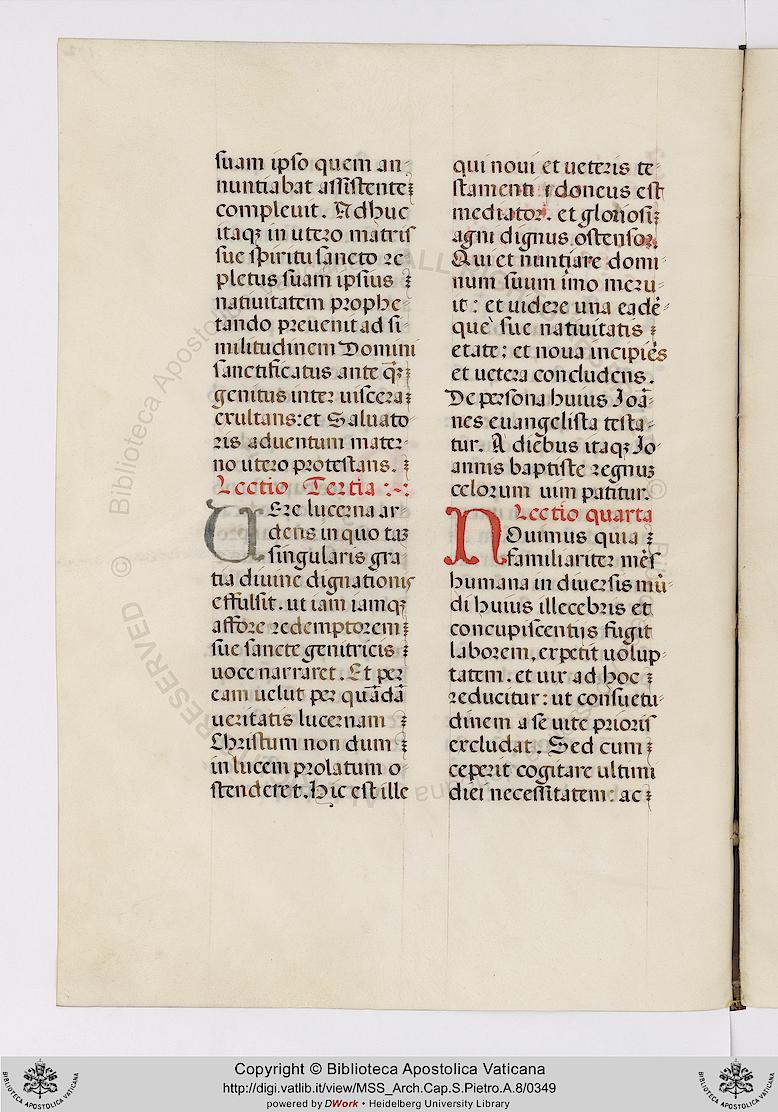 suam ipso quem an-
nuntiabat assistente:
compleuit. Adhuc
itaqꝫ in utero matris
sue spiritu sancto re-
pletus suam ipsius :
natiuitatem prophe-
tando preuenit ad si-
militudinem Domini
sanctificatus ante q̃ꝫ:
genitus inter uiscera:
exultans: et Saluato-
ris aduentum mater-
no utero protestans. :
Lectio Tertia :-:
UEre lucerna ar
dens in quo taꝫ
singularis gra
tia diuine dignationis
effulsit. ut iam iamqꝫ
affore redemptorem:
sue sancte genitricis :
uoce narraret. Et per
eam uelut per quãdã
ueritatis lucernam :
Christum non dum :
in lucem prolatum o-
stenderet. Hic est ille
qui noui et ueteris te-
stamenti idoneus est
mediator. et gloriosi:
agni dignus ostensor.
Qui et nuntiare domi-
num suum imo meru-
it: et uidere una eadẽ-
que sue natiuitatis :
etate: et noua incipiẽs
et uetera concludens.
De persona huius Joã-
nes euangelista testa-
tur. A diebus itaqꝫ Jo-
annis baptiste regnuꝫ
celorum uim patitur.
Lectio quarta
NOuimus quia :
familiariter mẽs
humana in diuersis mũ-
di huius illecebris et
concupiscentijs fugit
laborem, expetit uolup-
tatem. et uix ad hoc :
reducitur: ut consuetu-
dinem a se uite prioris
excludat. Sed cum :
ceperit cogitare ultimi
diei necessitatem: ac :
Copyright © Biblioteca Apostolica Vaticana
http://digi.vatlib.it/view/MSS_Arch.Cap.S.Pietro.A.8/0349
powered by DWork • Heidelberg University Library